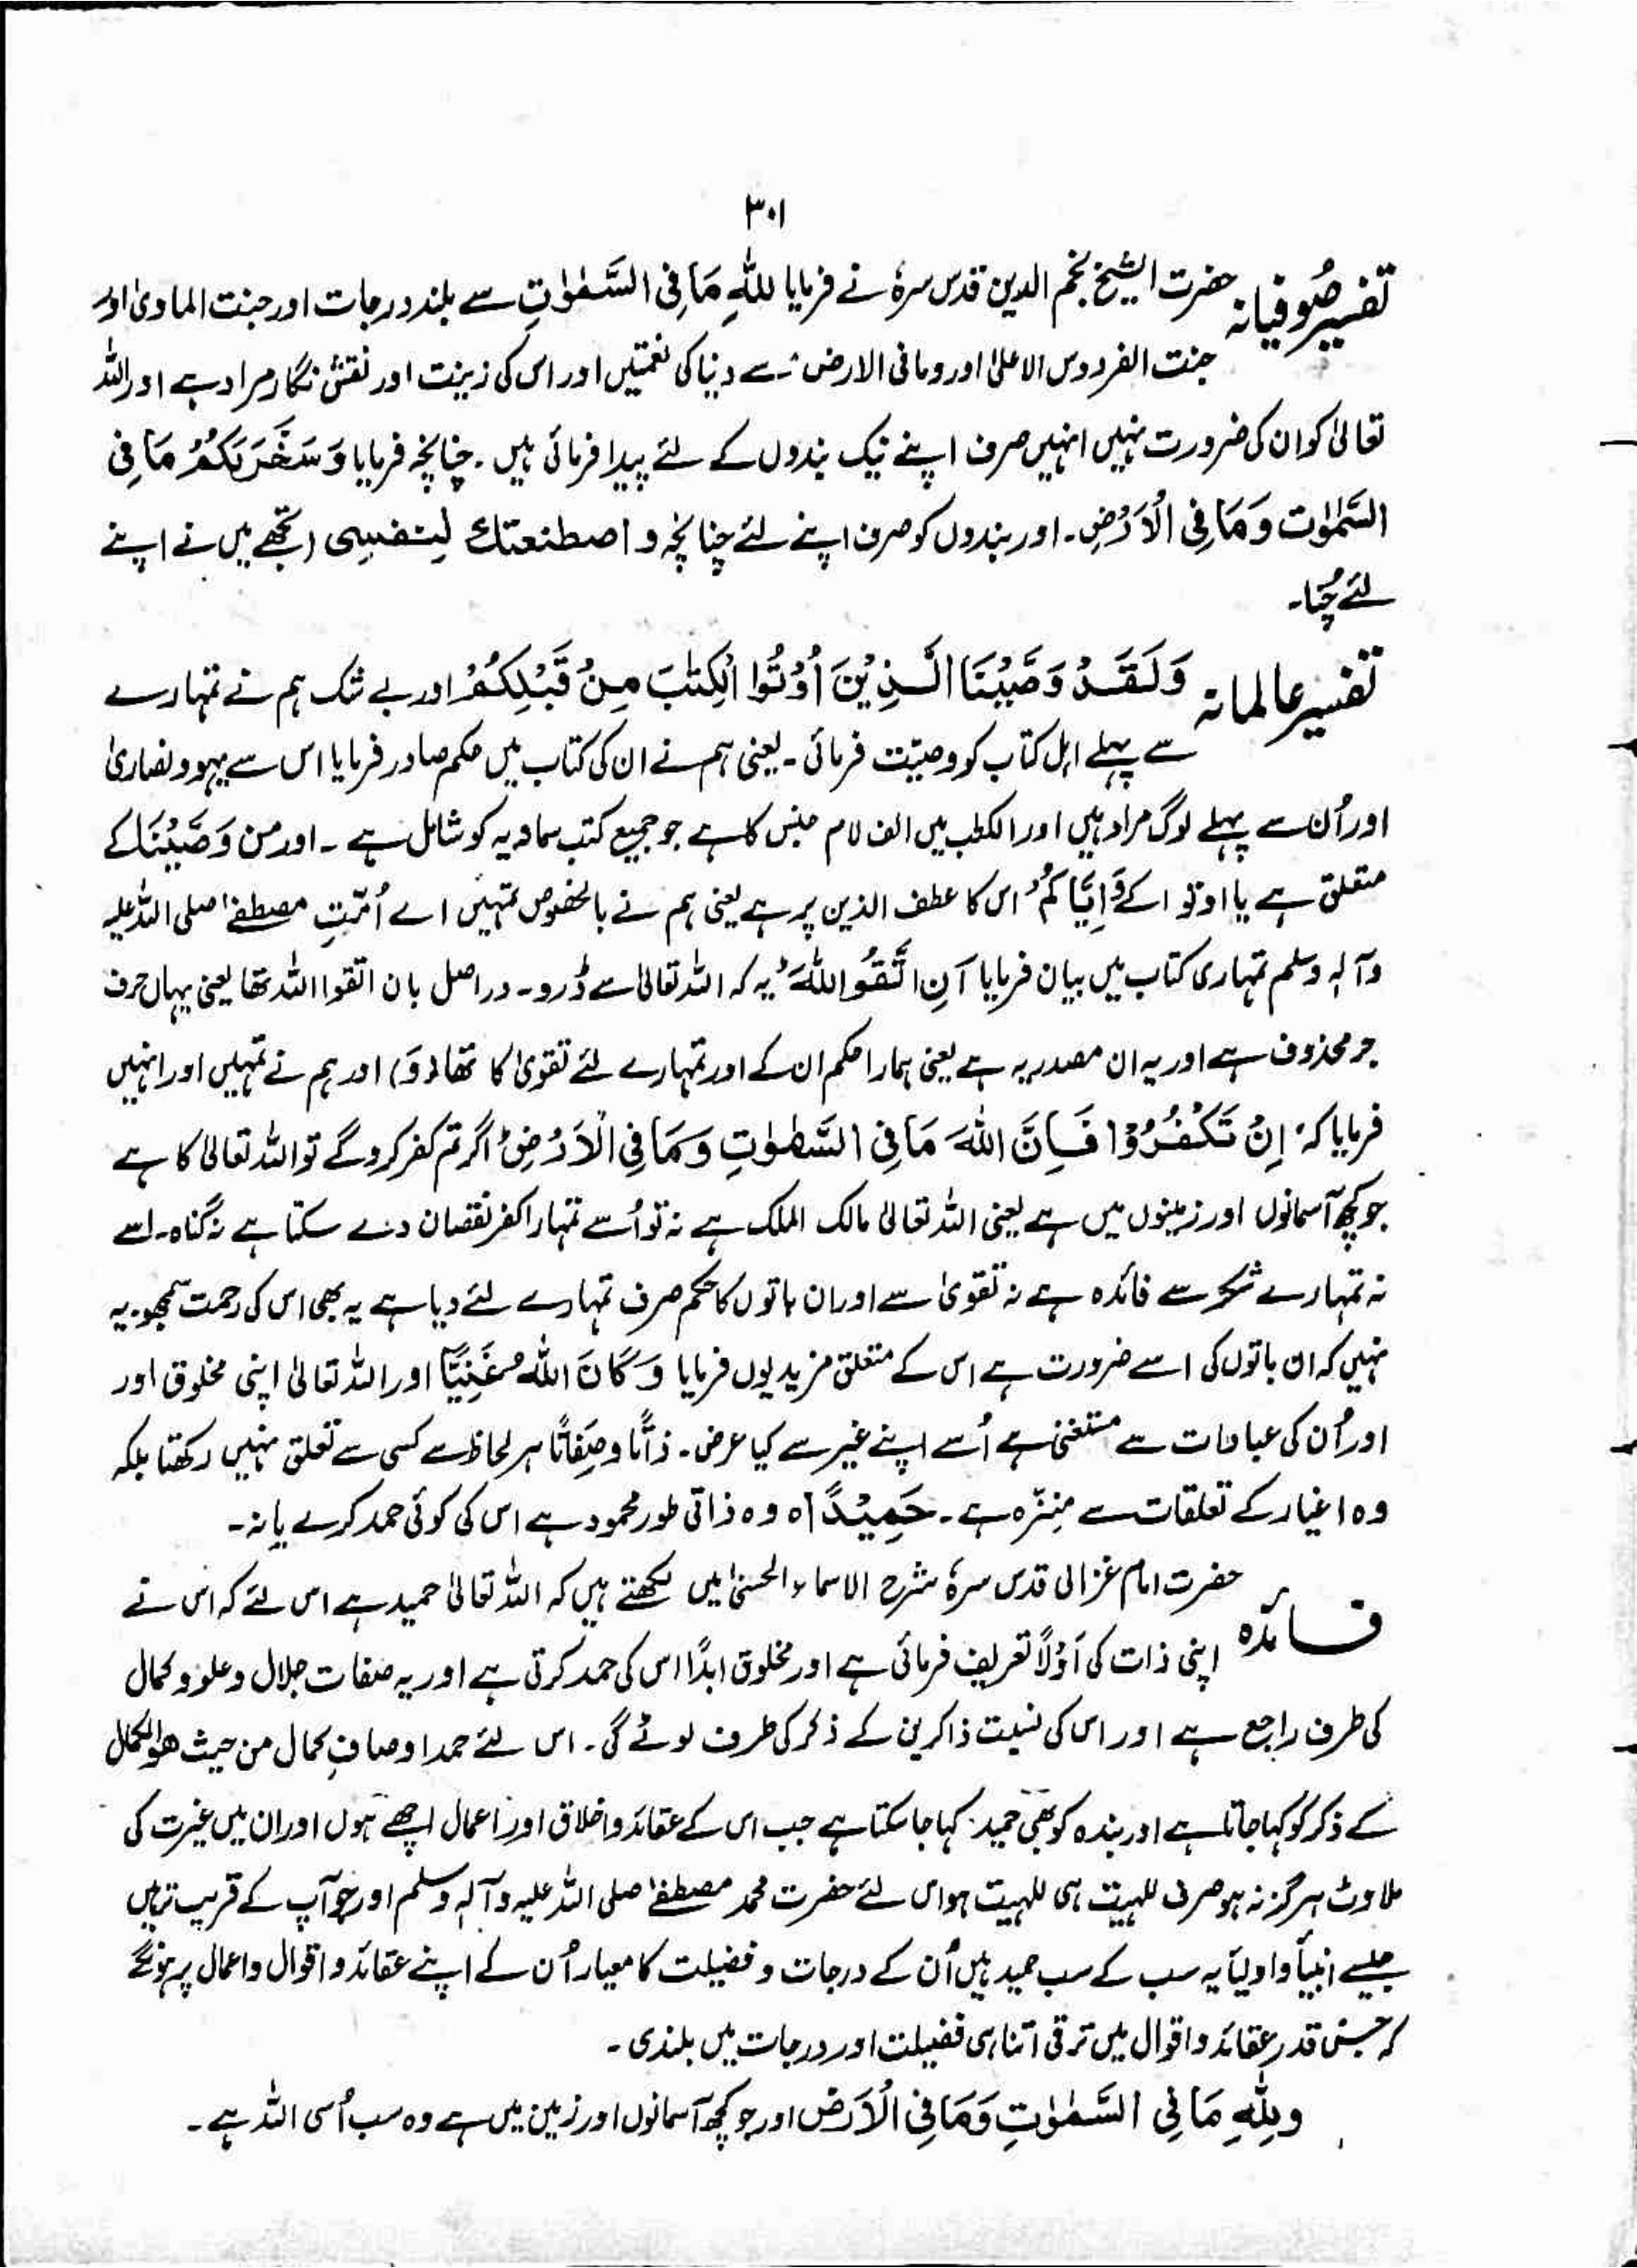 ۳۰۱
تفسیر صُوفیانہ حضرت الشیخ نجم الدین قدس سرہٗ نے فرمایا للّٰہِ مَا فِی السَّمٰوٰتِ سے بلند درجات اور جنت الماویٰ اور
جنت الفردوس الاعلیٰ اور وما فی الارض ؕ سے دنیا کی نعمتیں اور اس کی زینت اور نقش نگار مراد ہے اور اللہ
تعالیٰ کو ان کی ضرورت نہیں انہیں صرف اپنے نیک بندوں کے لئے پیدا فرمائی ہیں۔ چنانچہ فرمایا وَسَخَّرَ لَکُمْ مَا فِی
السَّمٰوٰت وَمَا فِی الْاَرْضِ۔ اور بندوں کو صرف اپنے لئے چنانچہ و اصطنعتك لِنفسِی (تجھے میں نے اپنے
لئے چُنا۔
تفسیر عالمانہ وَلَقَدْ وَصَّیْنَا الَّذِیْنَ اُوْتُوا الْکِتٰبَ مِنْ قَبْلِکُمْ اور بے شک ہم نے تمہارے
سے پہلے اہل کتاب کو وصیّت فرمائی۔ یعنی ہم نے ان کی کتاب میں حکم صادر فرمایا اس سے یہود و نصاریٰ
اور اُن سے پہلے لوگ مراد ہیں اور الکتٰب میں الف لام جنس کا ہے جو جمیع کتب سماویہ کو شامل ہے۔ اور من وَصَّیْنَا کے
متعلق ہے یا اوتوا کے وَاِیَّاکُمْ اس کا عطف الذین پر ہے یعنی ہم نے بالخصوص تمہیں اے اُمّتِ مصطفےٰ صلی اللہ علیہ
وآلہٖ وسلم تمہاری کتاب میں بیان فرمایا اَنِ اتَّقُوا اللّٰہَ ؕ یہ کہ اللہ تعالیٰ سے ڈرو۔ دراصل بان اتقوا اللہ تھا یعنی یہاں حرف
جر محذوف ہے اور یہ ان مصدریہ ہے یعنی ہمارا حکم ان کے اور تمہارے لئے تقویٰ کا تھا (وَ) اور ہم نے تمہیں اور انہیں
فرمایا کہ اِنْ تَکْفُرُوْا فَاِنَّ اللّٰهَ مَا فِی السَّمٰوٰتِ وَمَا فِی الْاَرْضِ ؕ اگر تم کفر کروگے تو اللہ تعالیٰ کا ہے
جو کچھ آسمانوں اور زمینوں میں ہے یعنی اللہ تعالیٰ مالک الملک ہے نہ تو اُسے تمہارا کفر نقصان دے سکتا ہے نہ گناہ۔ اسے
نہ تمہارے شکر سے فائدہ ہے نہ تقویٰ سے اور ان باتوں کا حکم صرف تمہارے لئے دیا ہے یہ بھی اس کی رحمت سمجھو۔ یہ
نہیں کہ ان باتوں کی اسے ضرورت ہے اس کے متعلق مزید یوں فرمایا وَکَانَ اللّٰهُ غَنِیًّا اور اللہ تعالیٰ اپنی مخلوق اور
اور اُن کی عبادات سے مستغنی ہے اُسے اپنے غیر سے کیا غرض۔ ذاتًا وصِفاتًا ہر لحاظ سے کسی سے تعلق نہیں رکھتا بلکہ
وہ اغیار کے تعلقات سے منزّہ ہے۔ حَمِیْدًا ٥ وہ ذاتی طور محمود ہے اس کی کوئی حمد کرے یا نہ۔
فائدہ حضرت امام غزالی قدس سرہٗ شرح الاسماء الحسنیٰ میں لکھتے ہیں کہ اللہ تعالیٰ حمید ہے اس لئے کہ اس نے
اپنی ذات کی اَوّلًا تعریف فرمائی ہے اور مخلوق ابدًا اس کی حمد کرتی ہے اور یہ صفات جلال و علو و کمال
کی طرف راجع ہے اور اس کی نسبت ذاکرین کے ذکر کی طرف لوٹے گی۔ اس لئے حمد اوصافِ کمال من حیث ھو الکمال
کے ذکر کو کہا جاتا ہے اور بندہ کو بھی حمید کہا جا سکتا ہے جب اس کے عقائد و اخلاق اور اعمال اچھے ہوں اور ان میں غیرت کی
ملاوٹ ہرگز نہ ہو صرف للہیت ہی للہیت ہو اس لئے حضرت محمد مصطفےٰ صلی اللہ علیہ وآلہٖ وسلم اور جو آپ کے قریب تر ہیں
جیسے انبیأ و اولیأ یہ سب کے سب حمید ہیں اُن کے درجات و فضیلت کا معیار اُن کے اپنے عقائد و اقوال و اعمال پر ہونگے
کہ جس قدر عقائد و اقوال میں ترقی اتنا ہی فضیلت اور درجات میں بلندی۔
وَلِلّٰہِ مَا فِی السَّمٰوٰتِ وَمَا فِی الْاَرْضِ اور جو کچھ آسمانوں اور زمین میں ہے وہ سب اُسی اللہ ہے۔